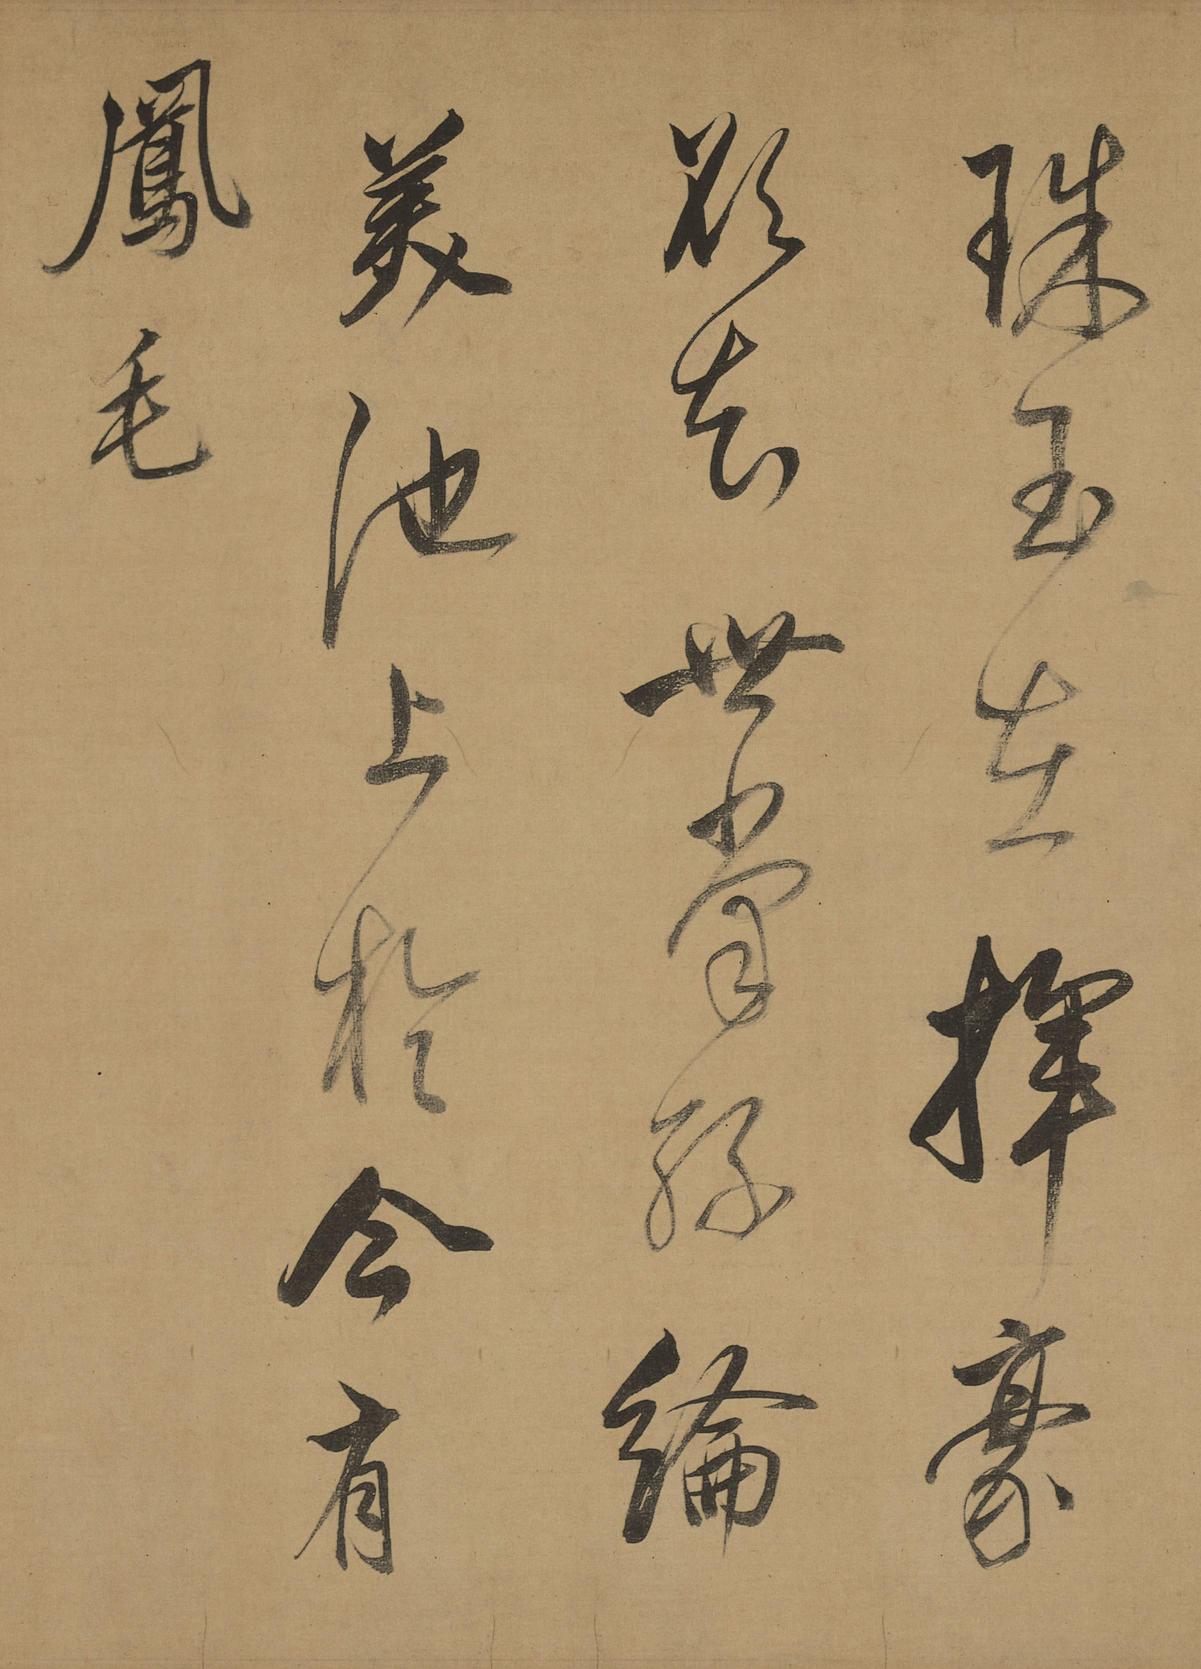 珠玉在揮豪
欲知世掌絲綸
美池上於今有
鳳毛